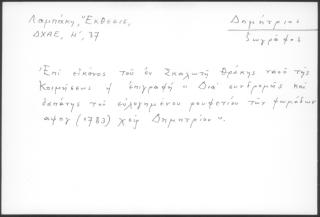 Λαμπάκη, "Ἔκθεσις,
ΔΧΑΕ, Η', 37
Δημήτριος
ζωγράφος
Ἐπὶ εἰκόνος τοῦ ἐν Σκαλωτῇ Θράκης ναοῦ τῆς
Κοιμήσεως ἡ ἐπιγραφή « Διά συνδρομῆς καὶ
δαπάνης τοῦ εὐλογημένου ρουφετίου τῶν ψαράδων
αψπγ (1783) χείρ Δημητρίου ».